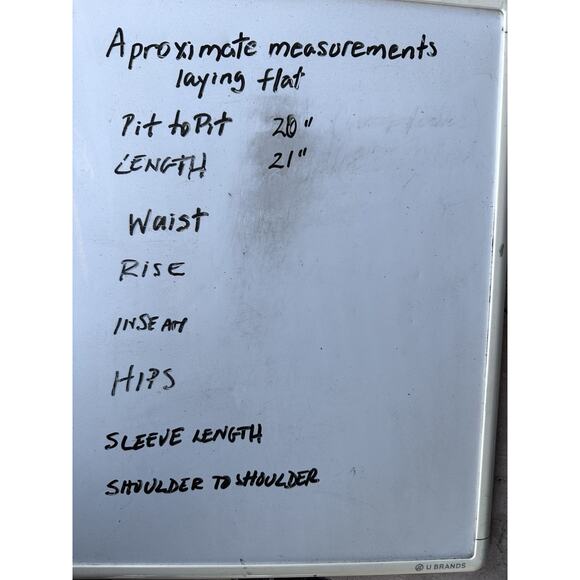 Aproximate measurements
laying flat
Pit to Pit 20"
LENGTH 21"
Waist
RISE
INSEAM
HIPS
SLEEVE LENGTH
SHOULDER TO SHOULDER
U BRANDS